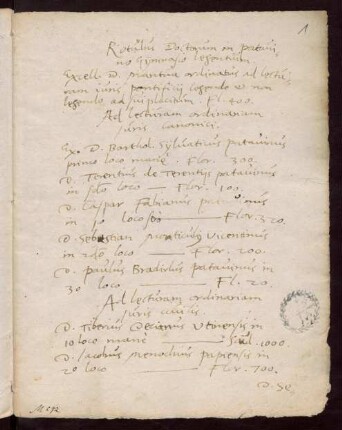 1
Rotulus Doctorum in patavi
no Gymnasio legentium.
Excell. D. Mantua ordinatus ad lectu
ram juris pontificii legendo et non
legendo ad sui placitum. Fl. 400.
Ad lecturam ordinariam
juris canonici.
Ex. D. Barthol. Sylvaticus patavinus
primo loco mane Flor. 300.
D. Terentius de Terentiis patavinus
in sdo loco — Flor. 100.
D. Gaspar Fabianus patavinus
in po loco Flor. 320.
D. Sebastian Vicentinus
in 2do loco — Flor. 200.
D. Paulus patavinus in
3o loco — Fl. 20.
Ad lecturam ordinariam
juris civilis
D. Tiberius Decianus Utinensis in
1o loco mane — 1000.
D. Jacobus Menochius papiensis in
2o loco — Flor. 700.
D. Jo
M 592